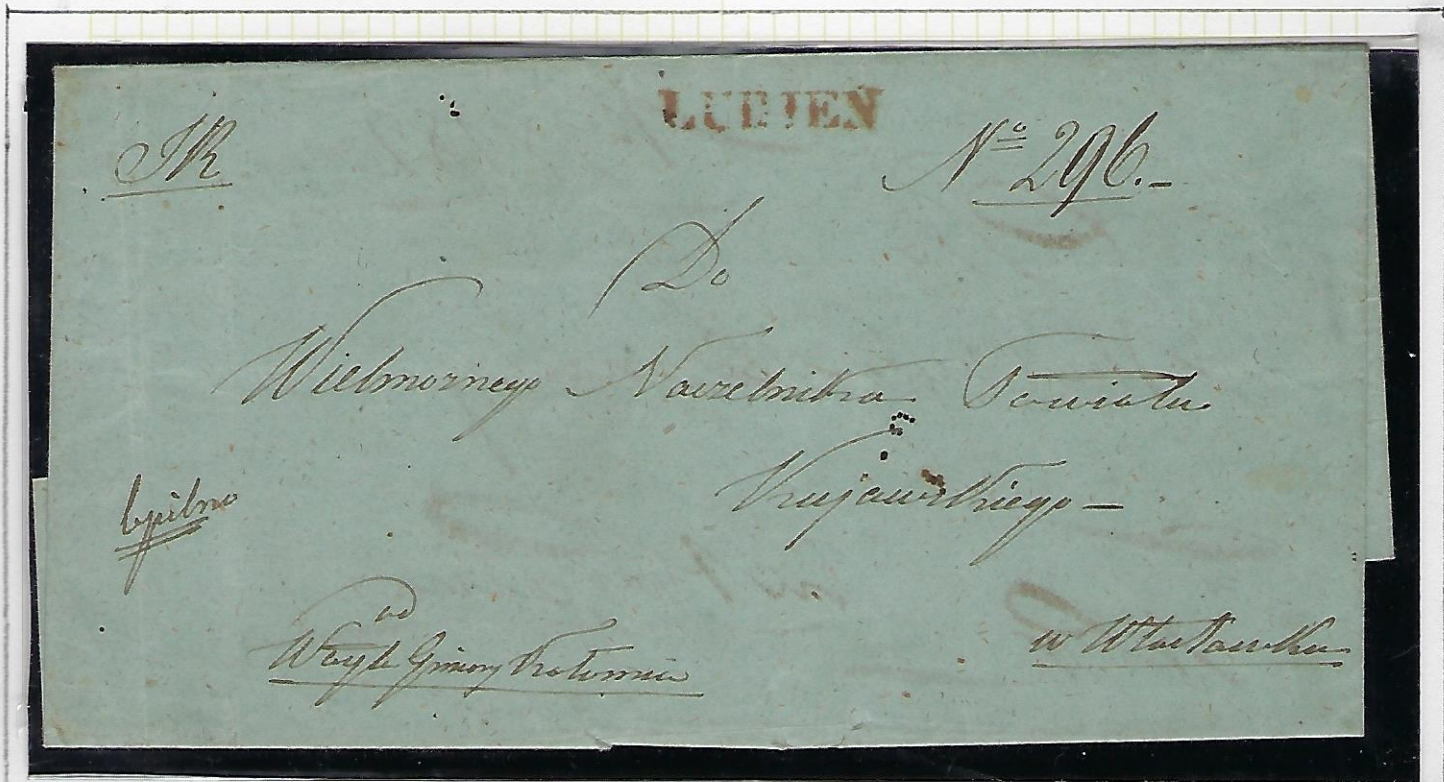 LUBIEN
JR
No 296.
Do
Wielmoznego Naczelnika Powiatu
Kujawskiego —
Spilno
od
Woyta Gminy
w Włocławku